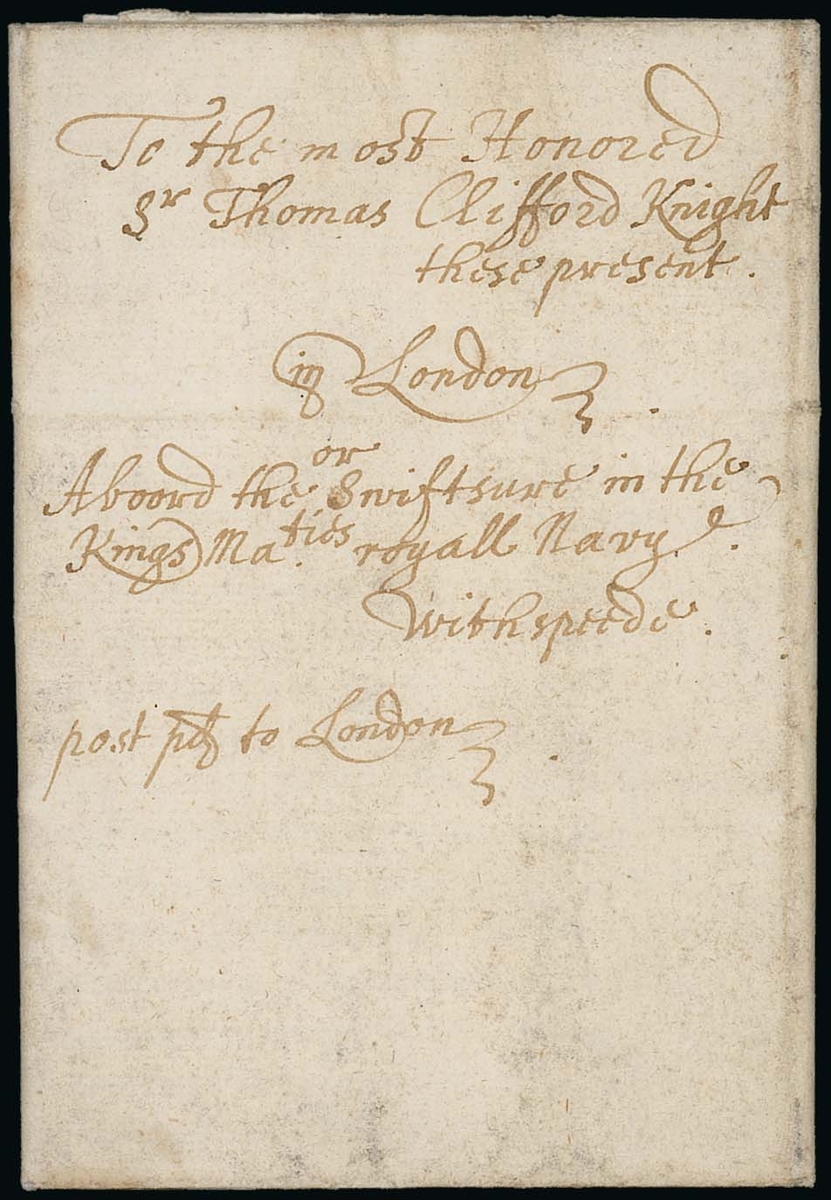 To the most Honored
Sr Thomas Clifford Knight
these present.
in London.
or
Aboord the Swiftsure in the
Kings Ma.ties royall Navy.
With speede.
post pd to London.